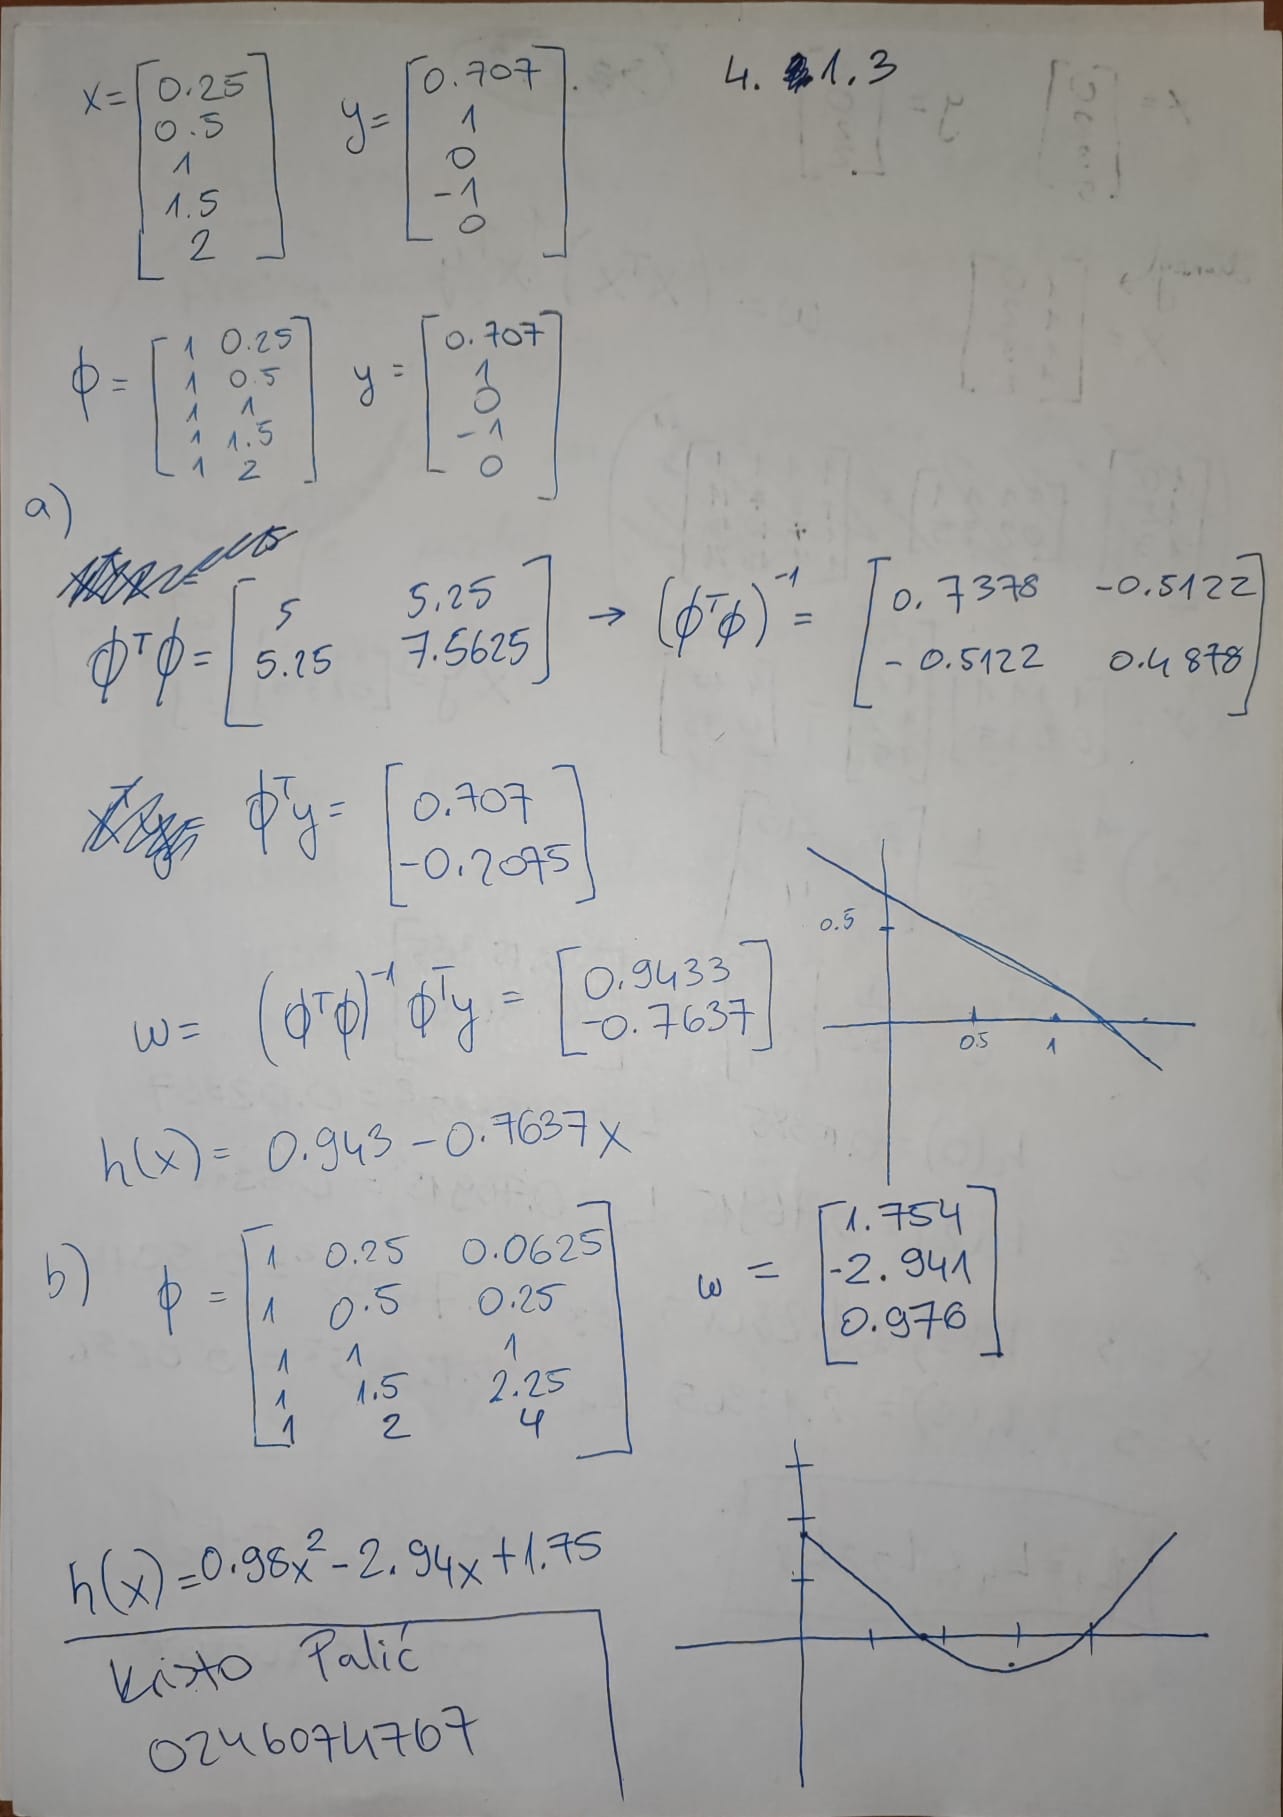 4. 1.3
x = [0.25 0.5 1 1.5 2] y = [0.707 1 0 -1 0].
ϕ = [1 0.25
1 0.5
1 1
1 1.5
1 2] y = [0.707 1 0 -1 0]
a)
ϕᵀϕ = [5 5.25
5.25 7.5625] → (ϕᵀϕ)⁻¹ = [0.7378 -0.5122
-0.5122 0.4878]
ϕᵀy = [0.707
-0.2075]
w = (ϕᵀϕ)⁻¹ ϕᵀy = [0.9433
-0.7637]
0.5
0.5 1
h(x) = 0.943 - 0.7637x
b) ϕ = [1 0.25 0.0625
1 0.5 0.25
1 1 1
1 1.5 2.25
1 2 4]
w = [1.754
-2.941
0.976]
h(x) = 0.98x² - 2.94x + 1.75
Kristo Palić
0246074767